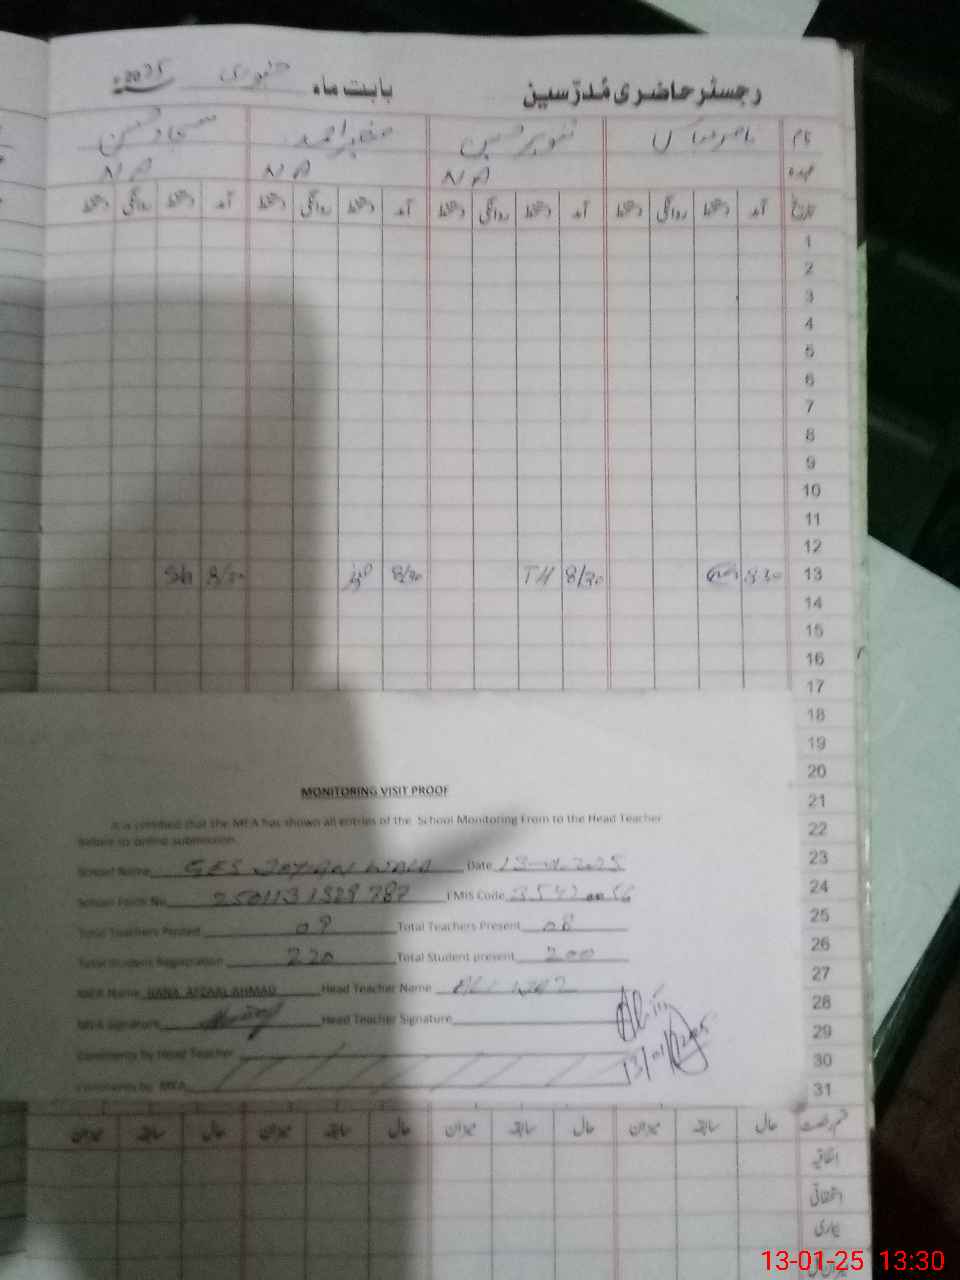 رجسٹر حاضری مُدرّسین بابت ماہ جنوری 2025ء
نام ناصر عباس تنویر حسین احمد سجاد حسین
عہدہ N A N A N A
تاریخ آمد دستخط روانگی دستخط آمد دستخط روانگی دستخط آمد دستخط روانگی دستخط آمد دستخط روانگی دستخط
1
2
3
4
5
6
7
8
9
10
11
12
13 8 30 8/30 TH 8/30 8/30 Sh
14
15
16
17
18
19
20
21
22
23
24
25
26
27
28
29
30
31
MONITORING VISIT PROOF
It is certified that the MEA has shown all entries of the School Monitoring From to the Head Teacher
before to online submission.
School Name GES WALA Date 13-01-2025
School Form No 2501131529787 EMIS Code
Total Teachers Posted 09 Total Teachers Present 08
Total Student Registration 220 Total Student present 200
MEA Name RANA AFZAAL AHMAD Head Teacher Name
MEA Signature Head Teacher Signature
13/01/2025
Comments by Head Teacher
Comments by MEA
قسم رخصت حال سابقہ میزان حال سابقہ میزان حال سابقہ میزان حال سابقہ میزان
اتفاقیہ
استحقاقی
بیماری
13-01-25 13:30